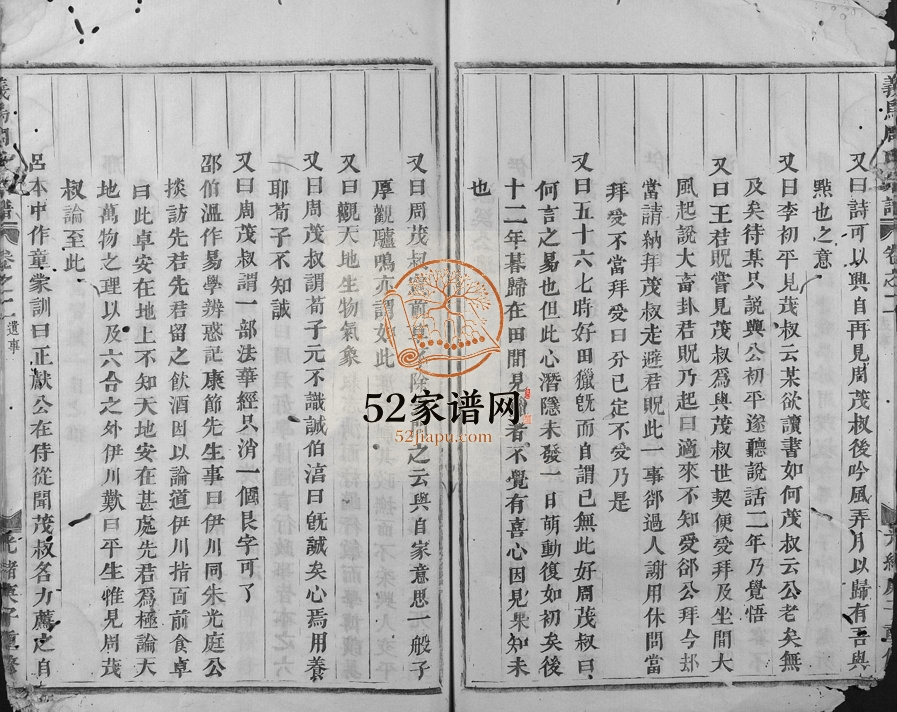 又曰詩可以興自再見周茂叔後吟風弄月以歸有吾與
點也之意
又曰李初平見茂叔云某欲讀書如何茂叔云公老矣無
及矣待某只說與公初平遂聽說話二年乃覺悟
又曰王君貺嘗見茂叔爲與茂叔世契便受拜及坐間大
風起說大畜卦君貺乃起曰適來不知受郤公拜今却
當請納拜茂叔走避君貺此一事郤過人謝用休問當
拜爱不當拜爱曰分已定不爱乃是
又曰五十六七時好田獵旣而自謂已無此好周茂叔曰
何言之易也但此心潛隱未發一日萌動復如初矣後
十二年暮歸在田間見 者不覺有喜心因見果知未
也
義烏周氏宗譜
卷之二
光緒庚子重修
又曰周茂叔窻前 除 之云與自家意思一般子
厚觀驢鳴亦謂如此
又曰觀天地生物氣象
又曰周茂叔謂荀子元不識誠伯淳曰旣誠矣心焉用養
耶荀子不知誠
又曰周茂叔謂一部法華經只消一個艮字可了
邵伯溫作易學辨惑記康節先生事曰伊川同朱光庭公
掞訪先君先君留之飲酒因以論道伊川指面前食卓
曰此卓安在地上不知天地安在甚處先君爲極論天
地萬物之理以及六合之外伊川歎曰平生惟見周茂
叔論至此
呂本中作童蒙訓曰正獻公在侍從聞茂叔名力薦之自
義烏周氏宗譜
卷之二
遺事
光緒庚子重修
52家谱网
52jiapu.com